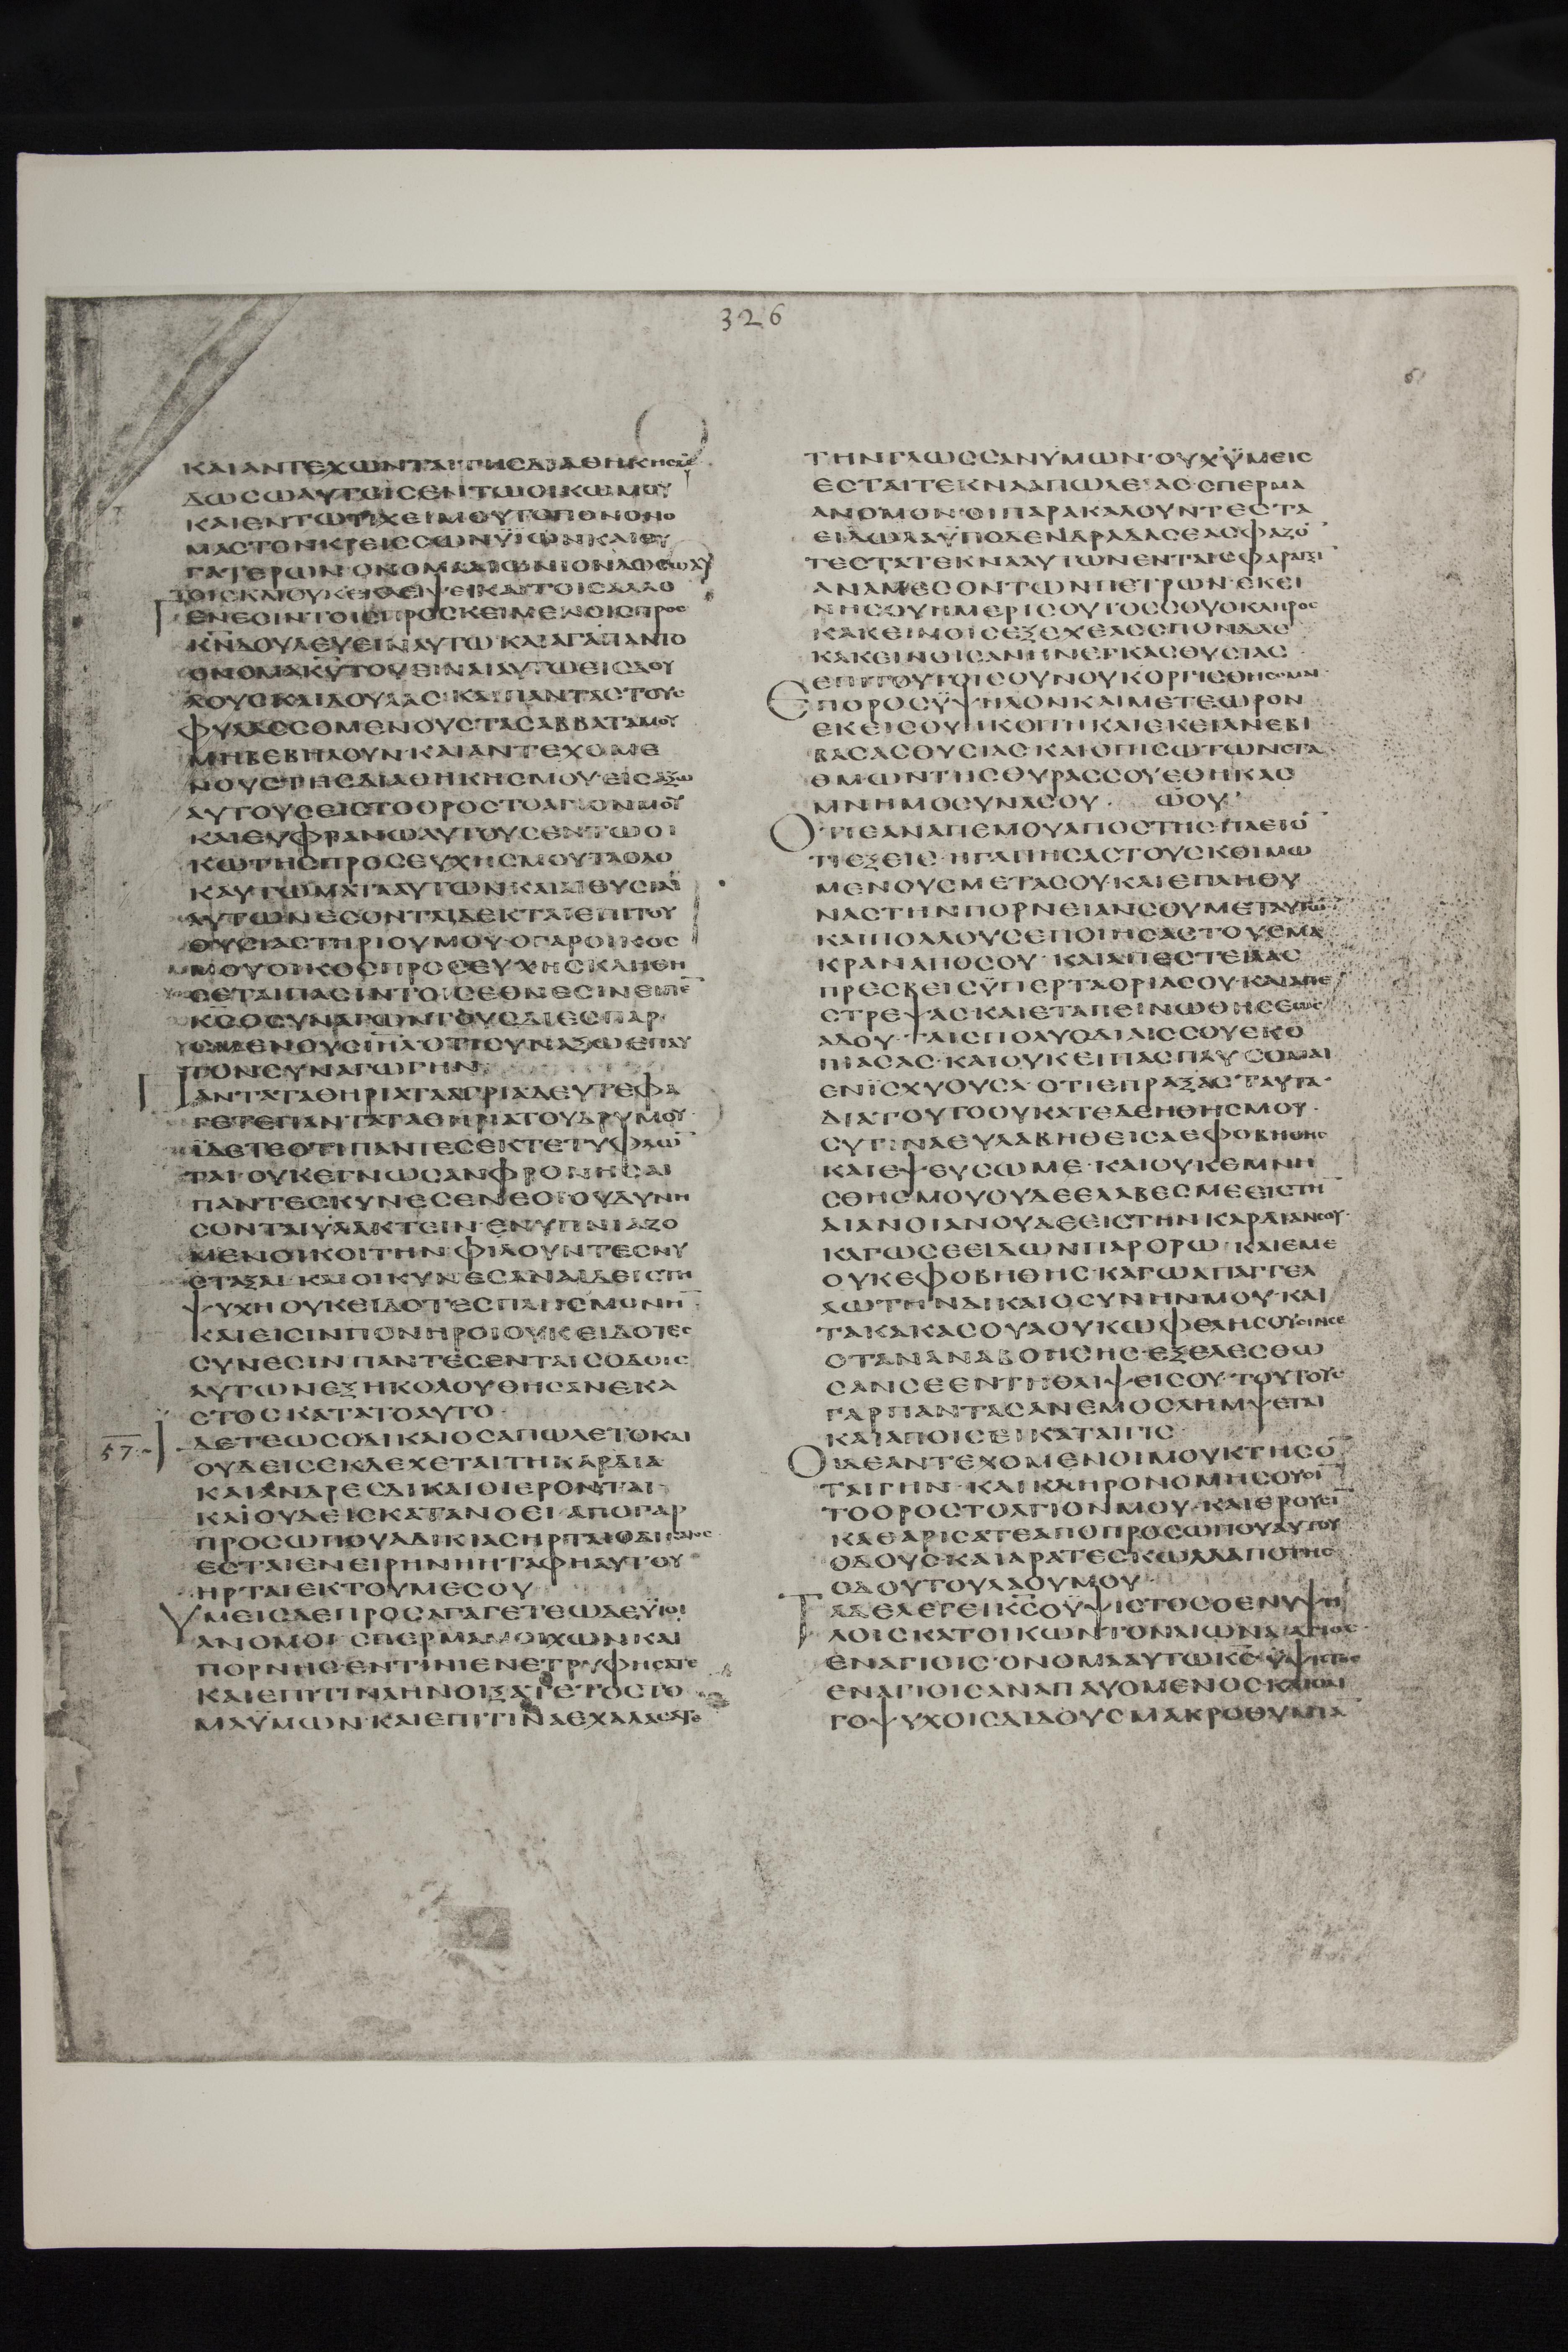 326
ΚΑΙΑΝΤΕΧΩΝΤΑΙΤΗΣΔΙΑΘΗΚΗΣ
ΔΩΣΩΑΥΤΟΙΣΕΝΤΩΟΙΚΩΜΟΥ
ΚΑΙΕΝΤΩΤΙΧΕΙΜΟΥΤΟΠΟΝΟΝΟ
ΜΑΣΤΟΝΚΡΕΙΣΣΩΝΫΙΩΝΚΑΙΘΥ
ΓΑΤΕΡΩΝ·ΟΝΟΜΑΑΙΩΝΙΟΝΔΩΣΩΑΥ
ΤΟΙΣΚΑΙΟΥΚΕΚΛΕΙΨΕΙΚΑΙΤΟΙΣΑΛΛΟ
ΓΕΝΕΣΙΝΤΟΙΣΠΡΟΣΚΕΙΜΕΝΟΙΣΠΡΟΣ
Κ̅Ν̅ΔΟΥΛΕΥΕΙΝΑΥΤΩΚΑΙΑΓΑΠΑΝΤΟ
ΟΝΟΜΑΚ̅Υ̅ΤΟΥΕΙΝΑΙΑΥΤΩΕΙΣΔΟΥ
ΛΟΥΣΚΑΙΔΟΥΛΑΣ·ΚΑΙΠΑΝΤΑΣΤΟΥΣ
ΦΥΛΑΣΣΟΜΕΝΟΥΣΤΑΣΑΒΒΑΤΑΜΟΥ
ΜΗΒΕΒΗΛΟΥΝ·ΚΑΙΑΝΤΕΧΟΜΕ
ΝΟΥΣΤΗΣΔΙΑΘΗΚΗΣΜΟΥ·ΕΙΣΑΞΩ
ΑΥΤΟΥΣΕΙΣΤΟΟΡΟΣΤΟΑΓΙΟΝΜΟΥ
ΚΑΙΕΥΦΡΑΝΩΑΥΤΟΥΣΕΝΤΩΟΙ
ΚΩΤΗΣΠΡΟΣΕΥΧΗΣΜΟΥΤΑΟΛΟ
ΚΑΥΤΩΜΑΤΑΑΥΤΩΝΚΑΙΑΙΘΥΣΙΑΙ
ΑΥΤΩΝΕΣΟΝΤΑΙΔΕΚΤΑΙΕΠΙΤΟΥ
ΘΥΣΙΑΣΤΗΡΙΟΥΜΟΥ·ΟΓΑΡΟΙΚΟΣ
ΜΟΥΟΙΚΟΣΠΡΟΣΕΥΧΗΣΚΛΗΘΗ
ΣΕΤΑΙΠΑΣΙΝΤΟΙΣΕΘΝΕΣΙΝΕΙΠΕ
Κ̅Σ̅ΟΣΥΝΑΓΩΝΤΟΥΣΔΙΕΣΠΑΡ
ΜΕΝΟΥΣΙ̅Η̅Λ̅ΟΤΙΣΥΝΑΞΩΕΠΑΥ
ΤΟΝΣΥΝΑΓΩΓΗΝ
ΠΑΝΤΑΤΑΘΗΡΙΑΤΑΑΓΡΙΑΔΕΥΤΕΦΑ
ΓΕΤΕΠΑΝΤΑΤΑΘΗΡΙΑΤΟΥΔΡΥΜΟΥ·
ΪΔΕΤΕΟΤΙΠΑΝΤΕΣΕΚΤΕΤΥΦΛΩ̅
ΤΑΙΟΥΚΕΓΝΩΣΑΝΦΡΟΝΗΣΑΙ
ΠΑΝΤΕΣΚΥΝΕΣΕΝΕΟΙΟΥΔΥΝΗ
ΣΟΝΤΑΙΫΛΑΚΤΕΙΝ·ΕΝΥΠΝΙΑΖΟ
ΜΕΝΟΙΚΟΙΤΗΝΦΙΛΟΥΝΤΕΣΝΥ
ΣΤΑΞΑΙ·ΚΑΙΟΙΚΥΝΕΣΑΝΑΙΔΕΙΣΤΗ
ΨΥΧΗΟΥΚΕΙΔΟΤΕΣΠΛΗΣΜΟΝΗ̅
ΚΑΙΕΙΣΙΝΠΟΝΗΡΟΙΟΥΚΕΙΔΟΤΕΣ
ΣΥΝΕΣΙΝΠΑΝΤΕΣΕΝΤΑΙΣΟΔΟΙΣ
ΑΥΤΩΝΕΞΗΚΟΛΟΥΘΗΣΑΝΕΚΑ
ΣΤΟΣΚΑΤΑΤΟΑΥΤΟ·
57
ΙΔΕΤΕΩΣΟΔΙΚΑΙΟΣΑΠΩΛΕΤΟΚΑΙ
ΟΥΔΕΙΣΕΚΔΕΧΕΤΑΙΤΗΚΑΡΔΙΑ
ΚΑΙΑΝΔΡΕΣΔΙΚΑΙΟΙΕΡΟΝΤΑΙ
ΚΑΙΟΥΔΕΙΣΚΑΤΑΝΟΕΙ·ΑΠΟΓΑΡ
ΠΡΟΣΩΠΟΥΑΔΙΚΙΑΣΗΡΤΑΙΟΔΙΚΑΙΟΣ
ΕΣΤΑΙΕΝΕΙΡΗΝΗΗΤΑΦΗΑΥΤΟΥ
ΗΡΤΑΙΕΚΤΟΥΜΕΣΟΥ
ΥΜΕΙΣΔΕΠΡΟΣΑΓΑΓΕΤΕΩΔΕΫΙΟΙ
ΑΝΟΜΟΙ·ΣΠΕΡΜΑΜΟΙΧΩΝΚΑΙ
ΠΟΡΝΗΣ·ΕΝΤΙΝΙΕΝΕΤΡΥΦΗΣΑΤΕ
ΚΑΙΕΠΙΤΙΝΑΗΝΟΙΞΑΤΕΤΟΣΤΟ
ΜΑΫΜΩΝ·ΚΑΙΕΠΙΤΙΝΑΕΧΑΛΑΣΑΤΕ
ΤΗΝΓΛΩΣΣΑΝΫΜΩΝ·ΟΥΧΫΜΕΙΣ
ΕΣΤΑΙΤΕΚΝΑΑΠΩΛΕΙΑΣ·ΣΠΕΡΜΑ
ΑΝΟΜΟΝ·ΟΙΠΑΡΑΚΑΛΟΥΝΤΕΣΤΑ
ΕΙΔΩΛΑΫΠΟΔΕΝΔΡΑΔΑΣΕΑΣΦΑΖΟ̅
ΤΕΣΤΑΤΕΚΝΑΑΥΤΩΝΕΝΤΑΙΣΦΑΡΑΓΞΙ
ΑΝΑΜΕΣΟΝΤΩΝΠΕΤΡΩΝ·ΕΚΕΙ
ΝΗΣΟΥΗΜΕΡΙΣΟΥΤΟΣΣΟΥΟΚΛΗΡΟΣ
ΚΑΚΕΙΝΟΙΣΕΞΕΧΕΑΣΣΠΟΝΔΑΣ
ΚΑΚΕΙΝΟΙΣΑΝΗΝΕΓΚΑΣΘΥΣΙΑΣ
ΕΠΙΤΟΥΤΟΙΣΟΥΝΟΥΚΟΡΓΙΣΘΗΣΟΜΑΙ·
ΕΠΟΡΟΣΫΨΗΛΟΝΚΑΙΜΕΤΕΩΡΟΝ
ΕΚΕΙΣΟΥΗΚΟΙΤΗΚΑΙΕΚΕΙΑΝΕΒΙ
ΒΑΣΑΣΘΥΣΙΑΣ·ΚΑΙΟΠΙΣΩΤΩΝΣΤΑ
ΘΜΩΝΤΗΣΘΥΡΑΣΣΟΥΕΘΗΚΑΣ
ΜΝΗΜΟΣΥΝΑΣΟΥ·
ΟΤΙΕΑΝΑΠΕΜΟΥΑΠΟΣΤΗΣ·ΠΛΕΙΟ̅
ΤΙΕΞΕΙΣ·ΗΓΑΠΗΣΑΣΤΟΥΣΚΟΙΜΩ
ΜΕΝΟΥΣΜΕΤΑΣΟΥ·ΚΑΙΕΠΛΗΘΥ
ΝΑΣΤΗΝΠΟΡΝΕΙΑΝΣΟΥΜΕΤΑΥΤΩ̅
ΚΑΙΠΟΛΛΟΥΣΕΠΟΙΗΣΑΣΤΟΥΣΜΑ
ΚΡΑΝΑΠΟΣΟΥ·ΚΑΙΑΠΕΣΤΕΙΛΑΣ
ΠΡΕΣΒΕΙΣΫΠΕΡΤΑΟΡΙΑΣΟΥ·ΚΑΙΑΠΕ
ΣΤΡΕΨΑΣ·ΚΑΙΕΤΑΠΕΙΝΩΘΗΣΕΩΣ
ΑΔΟΥ·ΤΑΙΣΠΟΛΥΟΔΙΑΙΣΣΟΥΕΚΟ
ΠΙΑΣΑΣ·ΚΑΙΟΥΚΕΙΠΑΣΠΑΥΣΟΜΑΙ
ΕΝΪΣΧΥΟΥΣΑ·ΟΤΙΕΠΡΑΞΑΣΤΑΥΤΑ·
ΔΙΑΤΟΥΤΟΟΥΚΑΤΕΔΕΗΘΗΣΜΟΥ·
ΣΥΤΙΝΑΕΥΛΑΒΗΘΕΙΣΑΕΦΟΒΗΘΗΣ
ΚΑΙΕΨΕΥΣΩΜΕ·ΚΑΙΟΥΚΕΜΝΗ
ΣΘΗΣΜΟΥΟΥΔΕΕΛΑΒΕΣΜΕΕΙΣΤΗ̅
ΔΙΑΝΟΙΑΝΟΥΔΕΕΙΣΤΗΝΚΑΡΔΙΑΝΣΟΥ·
ΚΑΓΩΣΕΕΙΔΩΝΠΑΡΟΡΩ·ΚΑΙΕΜΕ
ΟΥΚΕΦΟΒΗΘΗΣ·ΚΑΓΩΑΠΑΓΓΕΛ
ΛΩΤΗΝΔΙΚΑΙΟΣΥΝΗΝΜΟΥ·ΚΑΙ
ΤΑΚΑΚΑΣΟΥΑΟΥΚΩΦΕΛΗΣΟΥΣΙΝΣΕ
ΟΤΑΝΑΝΑΒΟΗΣΗΣ·ΕΞΕΛΕΣΘΩ
ΣΑΝΣΕΕΝΤΗΘΛΙΨΕΙΣΟΥ·ΤΟΥΤΟΥΣ
ΓΑΡΠΑΝΤΑΣΑΝΕΜΟΣΛΗΜΨΕΤΑΙ
ΚΑΙΑΠΟΙΣΕΙΚΑΤΑΙΓΙΣ·
ΟΙΔΕΑΝΤΕΧΟΜΕΝΟΙΜΟΥΚΤΗΣΟ̅
ΤΑΙΓΗΝ·ΚΑΙΚΛΗΡΟΝΟΜΗΣΟΥΣΙ̅
ΤΟΟΡΟΣΤΟΑΓΙΟΝΜΟΥ·ΚΑΙΕΡΟΥΣΙ
ΚΑΘΑΡΙΣΑΤΕΑΠΟΠΡΟΣΩΠΟΥΑΥΤΟΥ
ΟΔΟΥΣ·ΚΑΙΑΡΑΤΕΣΚΩΛΑΑΠΟΤΗΣ
ΟΔΟΥΤΟΥΛΑΟΥΜΟΥ·
ΤΑΔΕΛΕΓΕΙΚ̅Σ̅ΟΫΨΙΣΤΟΣΟΕΝΥΨΗ
ΛΟΙΣΚΑΤΟΙΚΩΝΤΟΝΑΙΩΝΑΑΓΙΟΣ
ΕΝΑΓΙΟΙΣ·ΟΝΟΜΑΑΥΤΩΚ̅Σ̅ΫΨΙΣΤΟΣ
ΕΝΑΓΙΟΙΣΑΝΑΠΑΥΟΜΕΝΟΣ·ΚΑΙΟΛΙ
ΓΟΨΥΧΟΙΣΔΙΔΟΥΣΜΑΚΡΟΘΥΜΙΑ̅